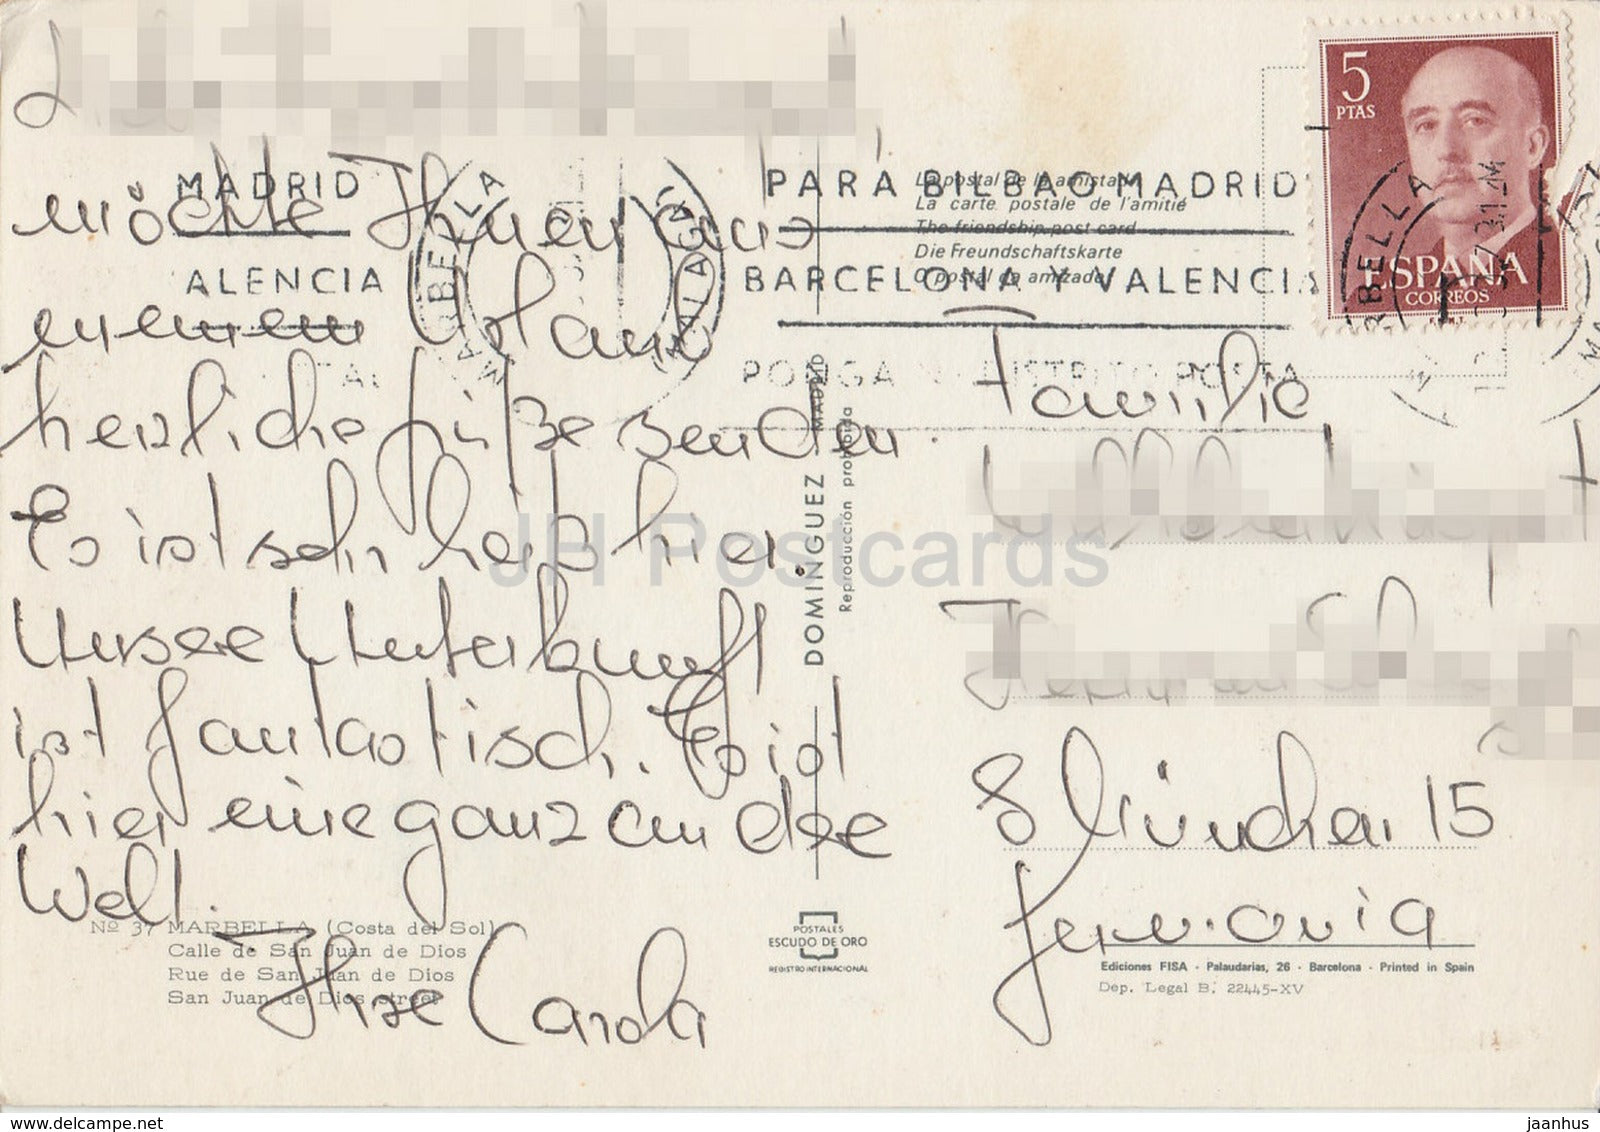 möchte Ihnen aus
meinem Urlaub
herzliche Grüße senden.
Es ist sehr heiß hier.
Unsere Unterkunft
ist fantastisch. Es ist
hier eine ganz andere
Welt.
Ihre Carola
Nº 37 MARBELLA (Costa del Sol)
Calle de San Juan de Dios
Rue de San Juan de Dios
San Juan de Dios street
MADRID
ALENCIA
MARBELLA
MALAGA
PARA BILBAO MADRID
BARCELONA Y VALENCIA
PONGA DISTRITO POSTAL
La postal de la amistad
La carte postale de l'amitié
The friendship post card
Die Freundschaftskarte
O postal da amizade
DOMINGUEZ - MADRID
Reproducción prohibida
POSTALES
ESCUDO DE ORO
REGISTRO INTERNACIONAL
5
PTAS
ESPAÑA
CORREOS
F.N.M.T.
Familie
8 München 15
Germania
Ediciones FISA - Palaudarias, 26 - Barcelona - Printed in Spain
Dep. Legal B. 22445-XV
JH Postcards
www.delcampe.net
jaanhus